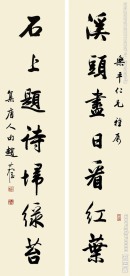 溪頭盡日看紅葉
無平仁兄雅屬
石上題詩掃綠苔
集唐人句 趙